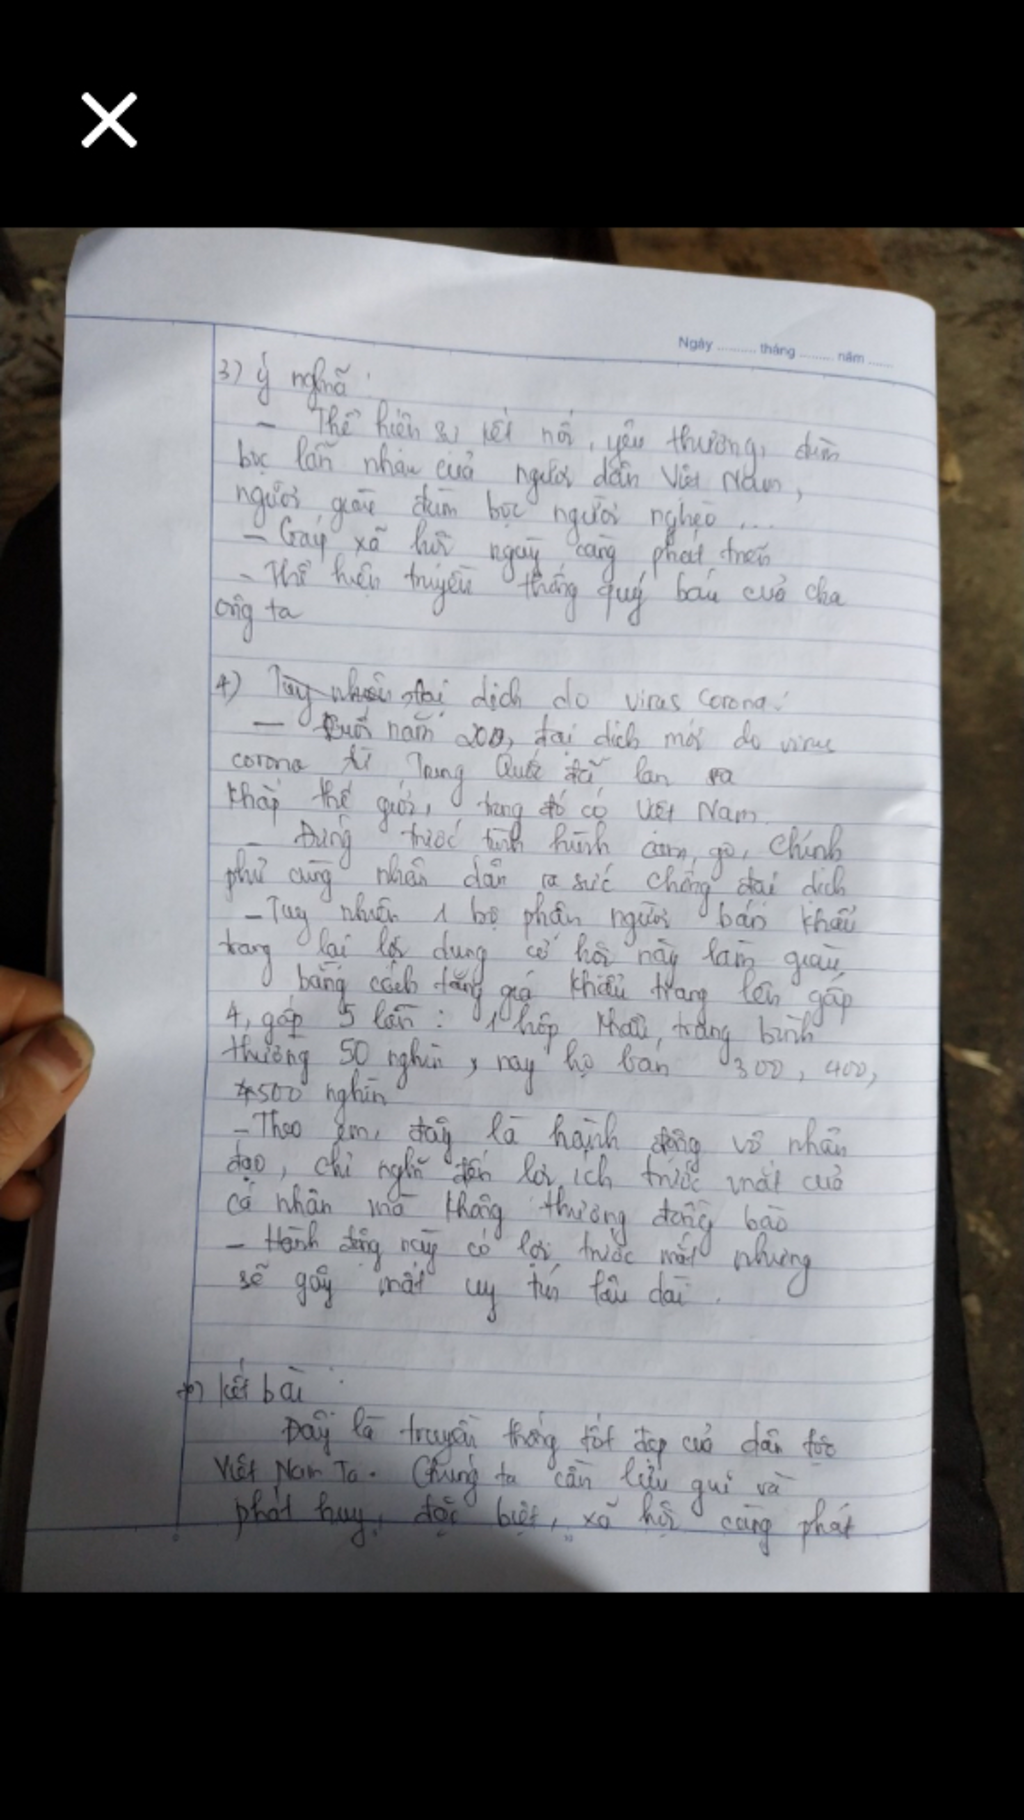 Ngày ......... tháng ........ năm ......
3) Ý nghĩa :
- Thể hiện sự kết nối, yêu thương, đùm
bọc lẫn nhau của người dân Việt Nam,
người giàu đùm bọc người nghèo ,...
- Gáp xã hội ngày càng phát triển
- Thể hiện truyền thống quý báu của cha
ông ta
4) Tuy nhiên, đại dịch do virus corona:
- Cuối năm , đại dịch mới do virus
corona từ Trung Quốc đã lan ra
khắp thế giới, trong đó có Việt Nam.
- Đứng trước tình hình cam, go, chính
phủ cùng nhân dân ra sức chống đại dịch
- Tuy nhiên 1 bộ phận người bán khẩu
trang lại lợi dụng cơ hội này làm giàu
bằng cách tăng giá khẩu trang lên gấp
4, gấp 5 lần : 1 hộp khẩu trang bình
thường 50 nghìn, nay họ bán 300, 400,
500 nghìn
- Theo em, đây là hành động vô nhân
đạo, chỉ nghĩ đến lợi ích trước mắt của
cá nhân mà không thương đồng bào
- Hành động này có lợi trước mắt nhưng
sẽ gây mất uy tín lâu dài.
Kết bài :
Đây là truyền thống tốt đẹp của dân tộc
Việt Nam Ta. Chúng ta cần lưu giữ và
phát huy, đặc biệt, xã hội càng phát